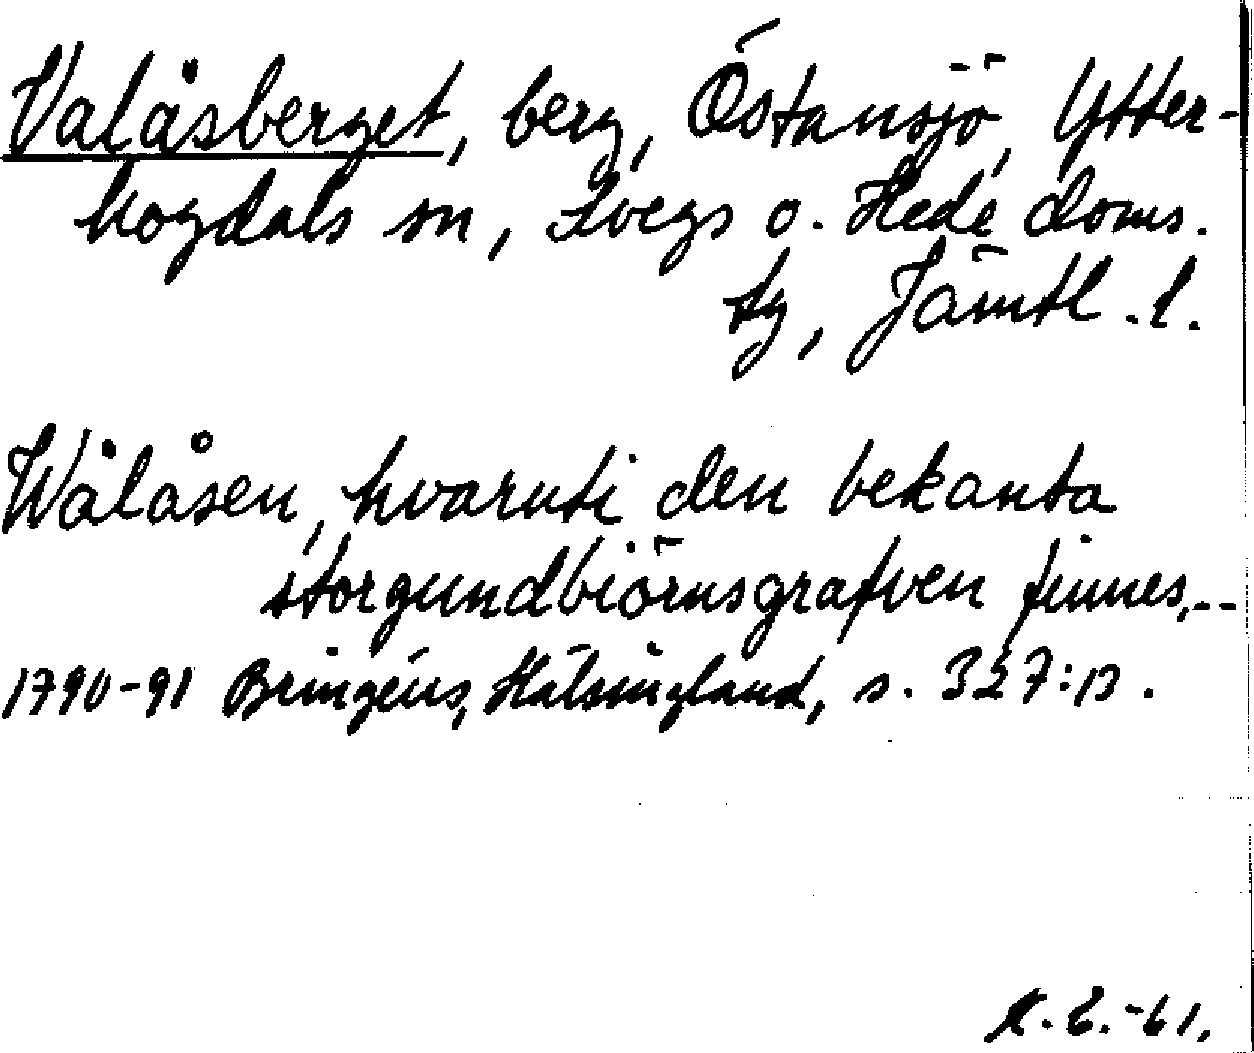 Valåsberget, berg, Östansjö, Ytter-
hogdals sn, Svegs o. Hede doms.
sg, Jämtl. l.
Wålåsen, hvaruti den bekanta
storgundbiörnsgrafven finnes,--
1790-91 Bringéus, Hälsingland, s. 327:13.
K.E.-61.